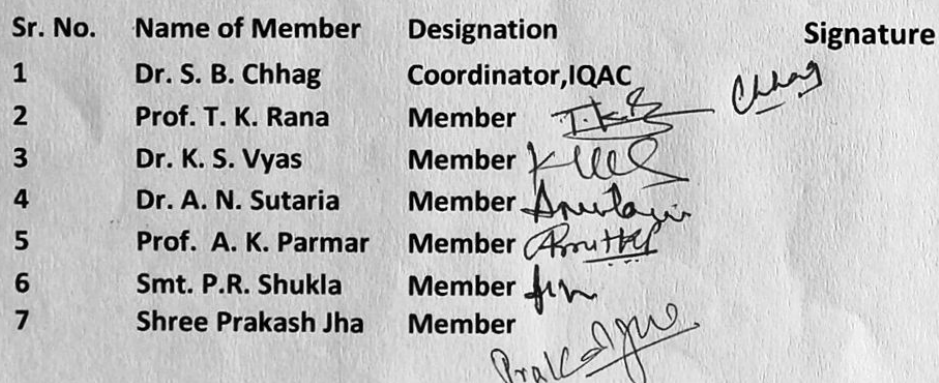 Sr. No. Name of Member Designation Signature
1 Dr. S. B. Chhag Coordinator,IQAC Chhag
2 Prof. T. K. Rana Member
3 Dr. K. S. Vyas Member
4 Dr. A. N. Sutaria Member
5 Prof. A. K. Parmar Member
6 Smt. P.R. Shukla Member
7 Shree Prakash Jha Member